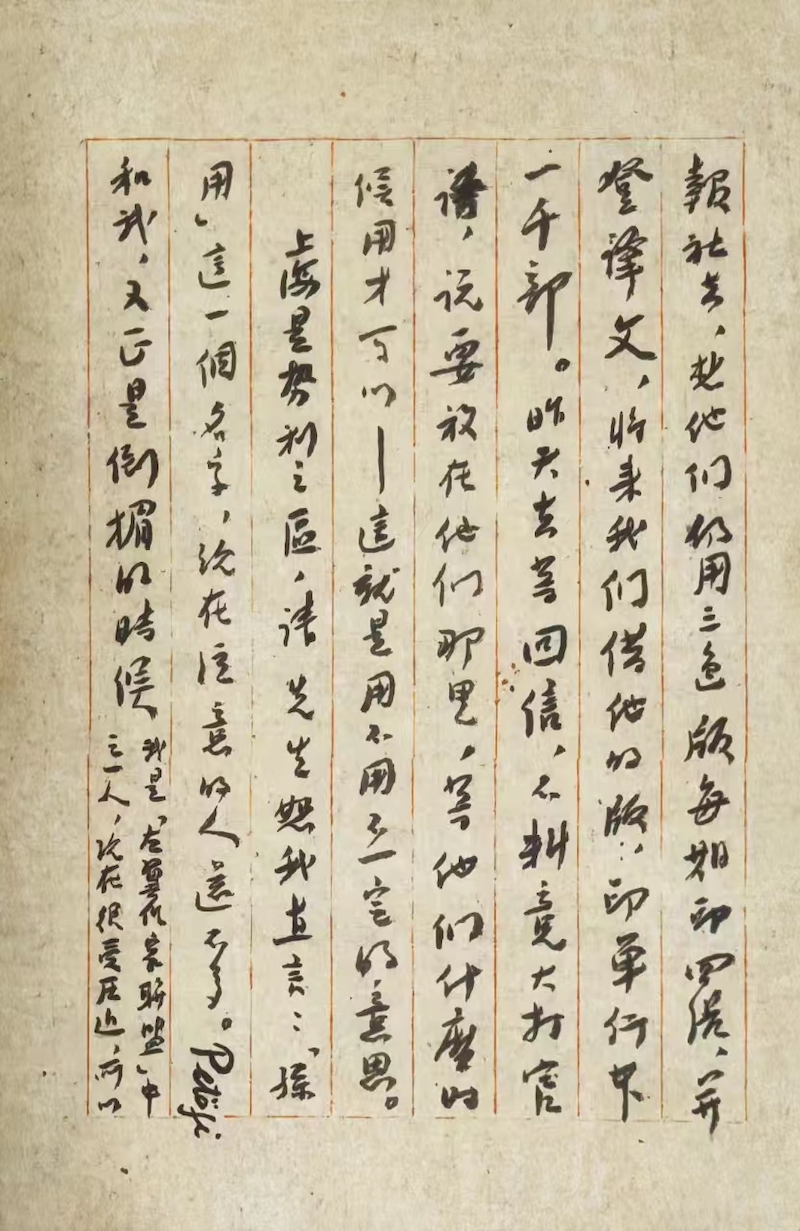 報社去，想他们仍用三色版每期印四張，并
登譯文，将来我们借他的版，印單行本
一千部。昨天去等回信，不料竟大打官
話，說要放在他们那里，等他们什麽时
候用才可以——這就是用不用不一定的意思。
上海是勢利之區，請先生恕我直言：「孫
用」這一個名字，现在注意的人還不多。Petőfi
和我，又正是倒楣的時候，
我是「左翼作家聯盟」中
之一人，现在很受压迫，所以